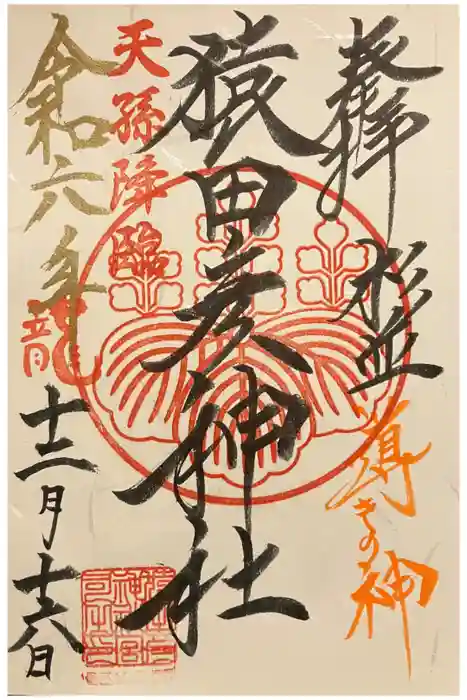 奉拝
杉並
導きの神
猿田彦神社
天孫降臨
令和六年
龍
十二月十六日